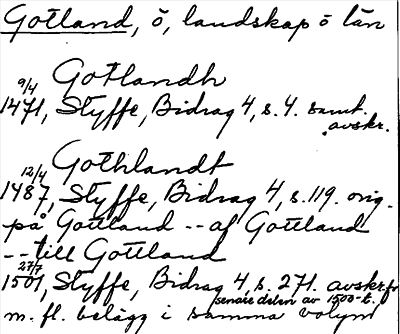 Gotland, ö, landskap o län
Gotlandh
9/4
1471, Styffe, Bidrag 4, s. 4. samt.
avskr.
Gothlandt
12/4
1487, Styffe, Bidrag 4, s. 119. orig.
på Gottland -- af Gottland
-- till Gottland
27/7
1501, Styffe, Bidrag 4, s. 271. avskr. fr
senare delen av 1500-t.
m. fl. belägg i samma volym